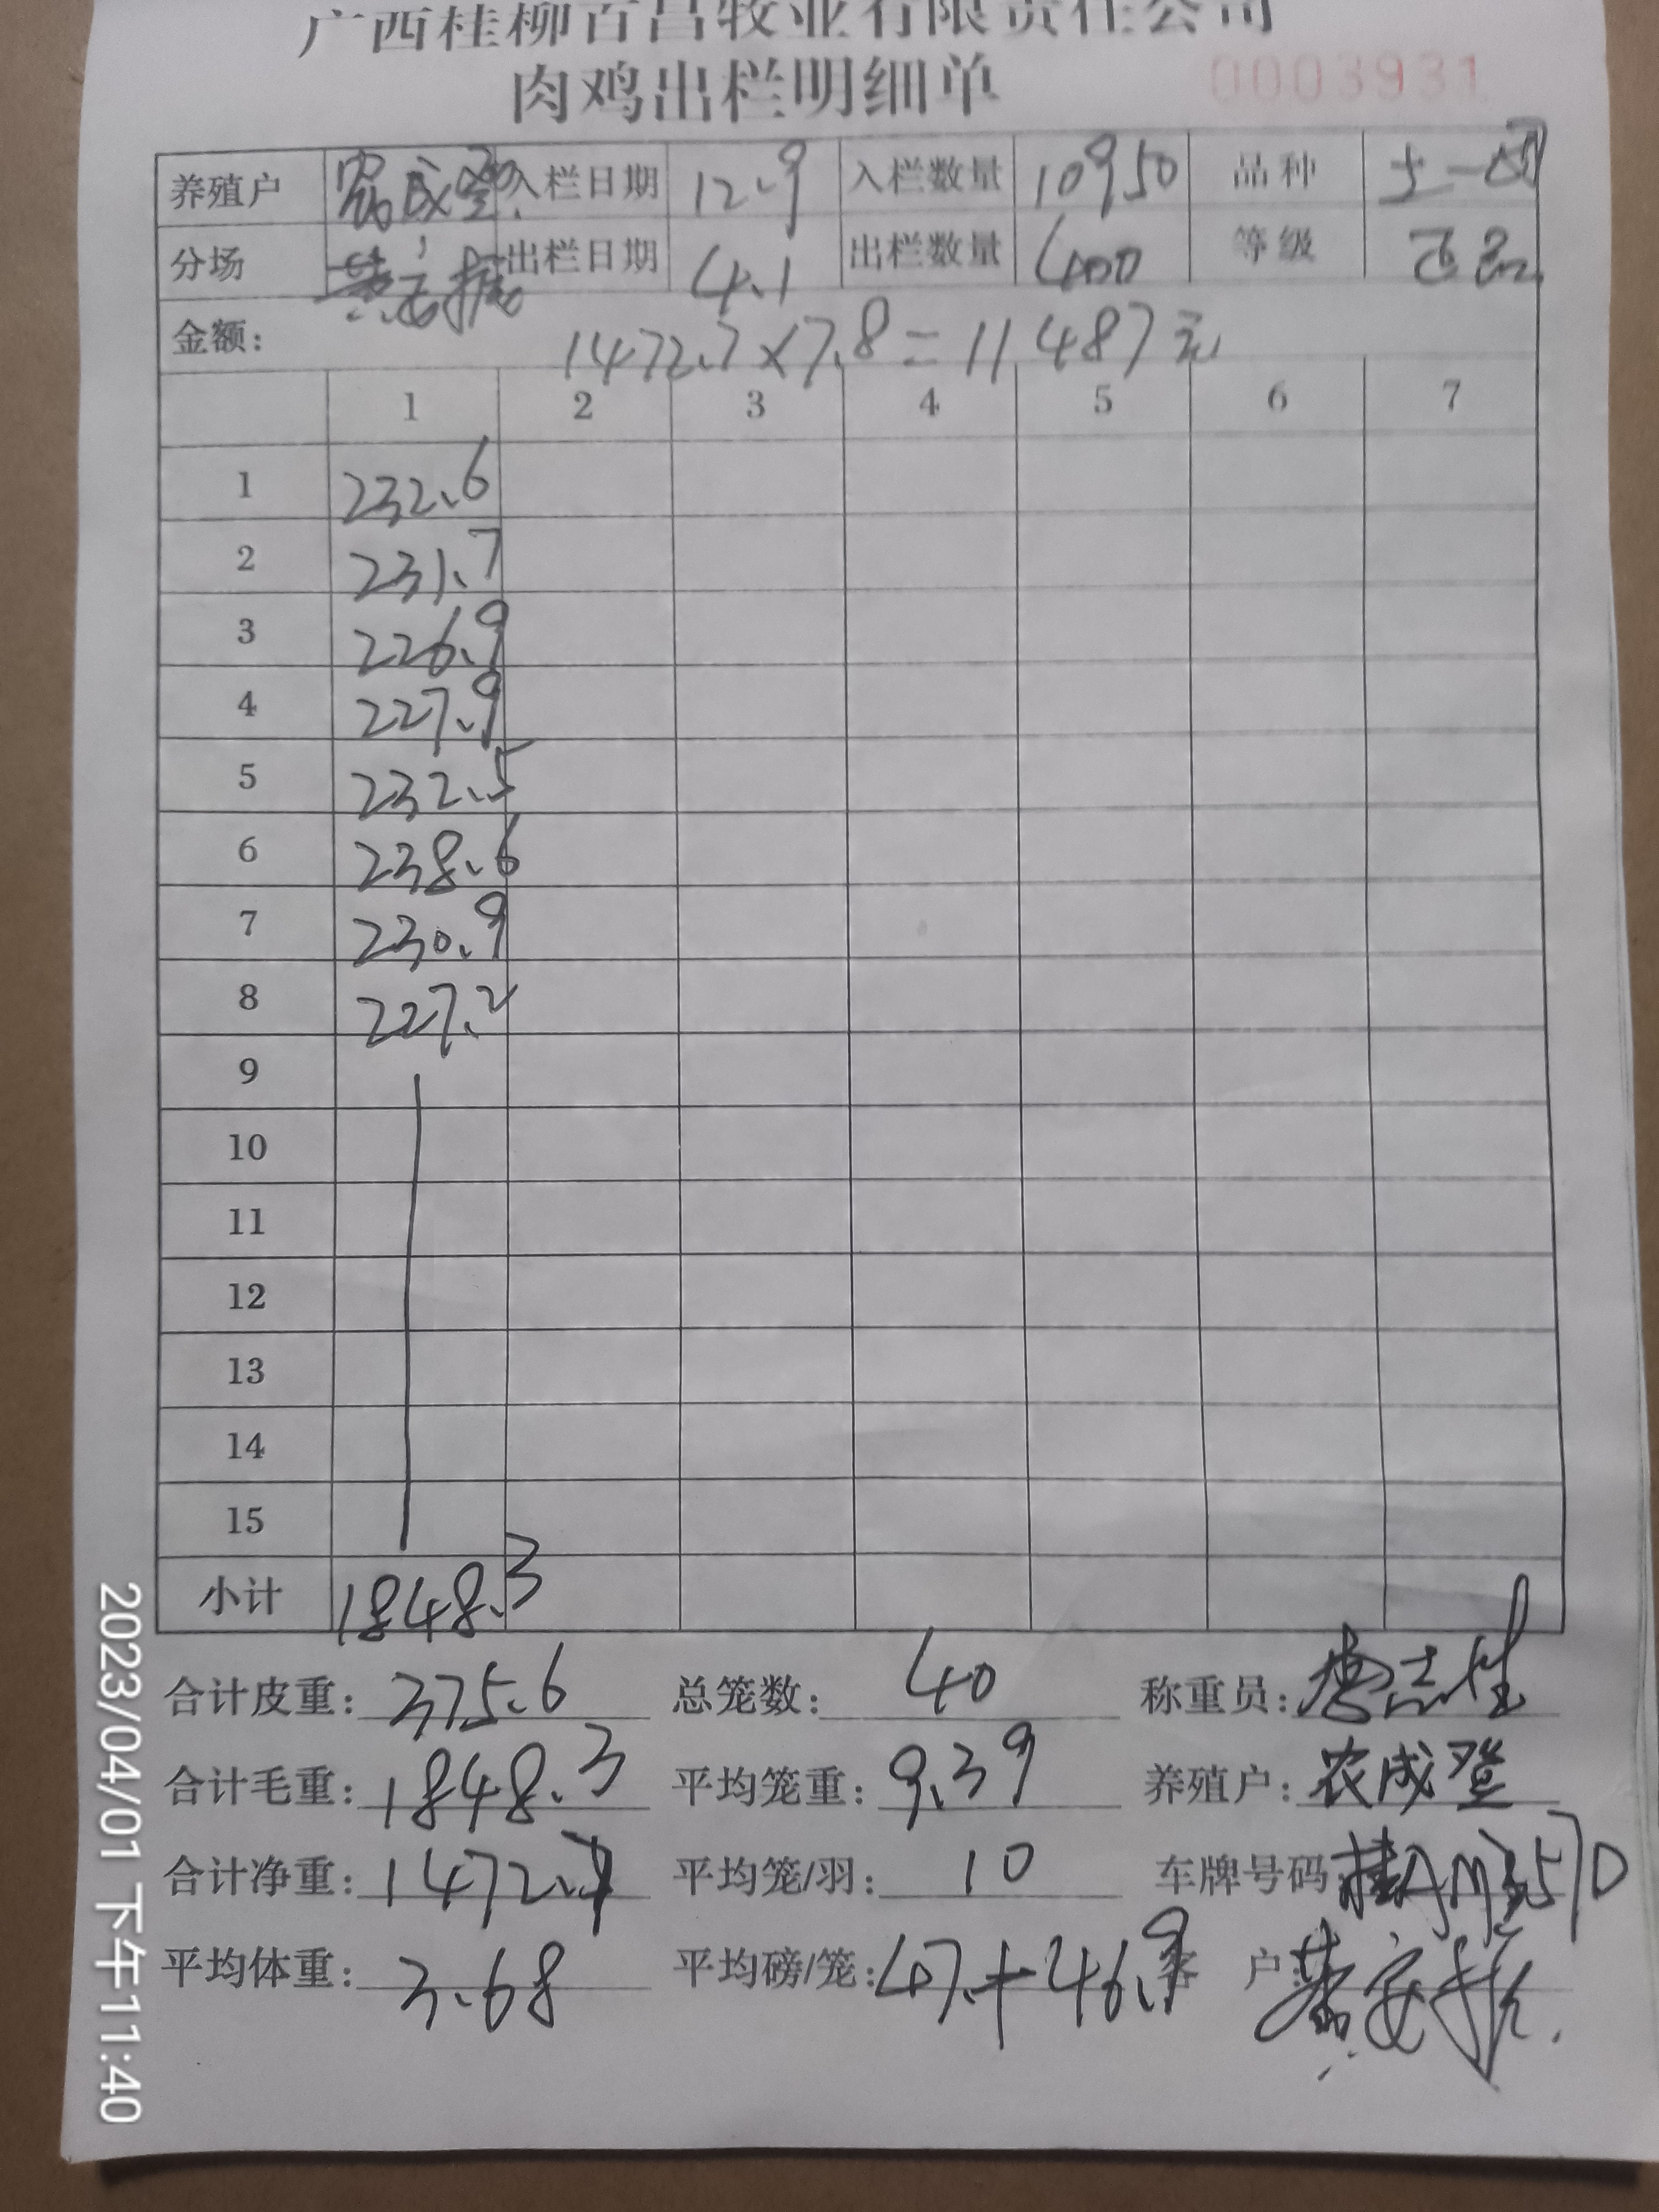 广西桂柳百昌牧业有限责任公司
肉鸡出栏明细单 0003931
养殖户 农成登 入栏日期 12.9 入栏数量 10950 品种 土一
分场 出栏日期 4.1 出栏数量 400 等级
金额: 1472.7×7.8=11487元
1 2 3 4 5 6 7
1 232.6
2 231.7
3 226.9
4 227.9
5 232.5
6 238.6
7 230.9
8 227.2
9
10
11
12
13
14
15
小计 1848.3
合计皮重: 375.6 总笼数: 40 称重员:
合计毛重: 1848.3 平均笼重: 9.39 养殖户: 农成登
合计净重: 1472.7 平均笼/羽: 10 车牌号码
平均体重: 3.68 平均磅/笼: 47.+-46.9 客户:
2023/04/01 下午11:40